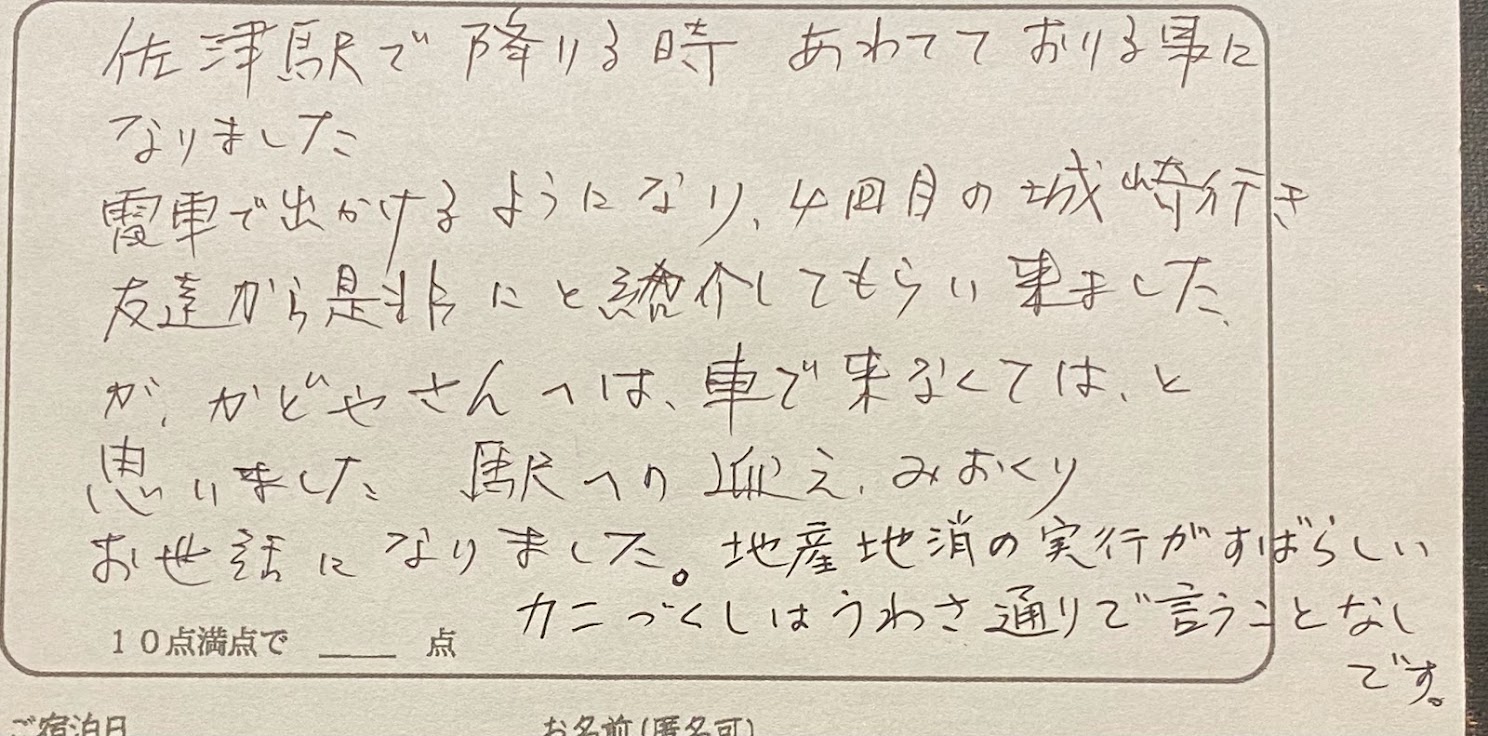 佐津駅で降りる時 あわてて おりる事に
なりました
電車で出かけるようになり、4回目の城崎行き
友達から是非にと紹介してもらい来ました、
が、かどやさんへは、車で来なくては、と
思いました 駅への迎え、みおくり
お世話になりました。地産地消の実行がすばらしい
カニづくしはうわさ通りで言うことなし
です。
10点満点で ___ 点
ご宿泊日 お名前(匿名可)